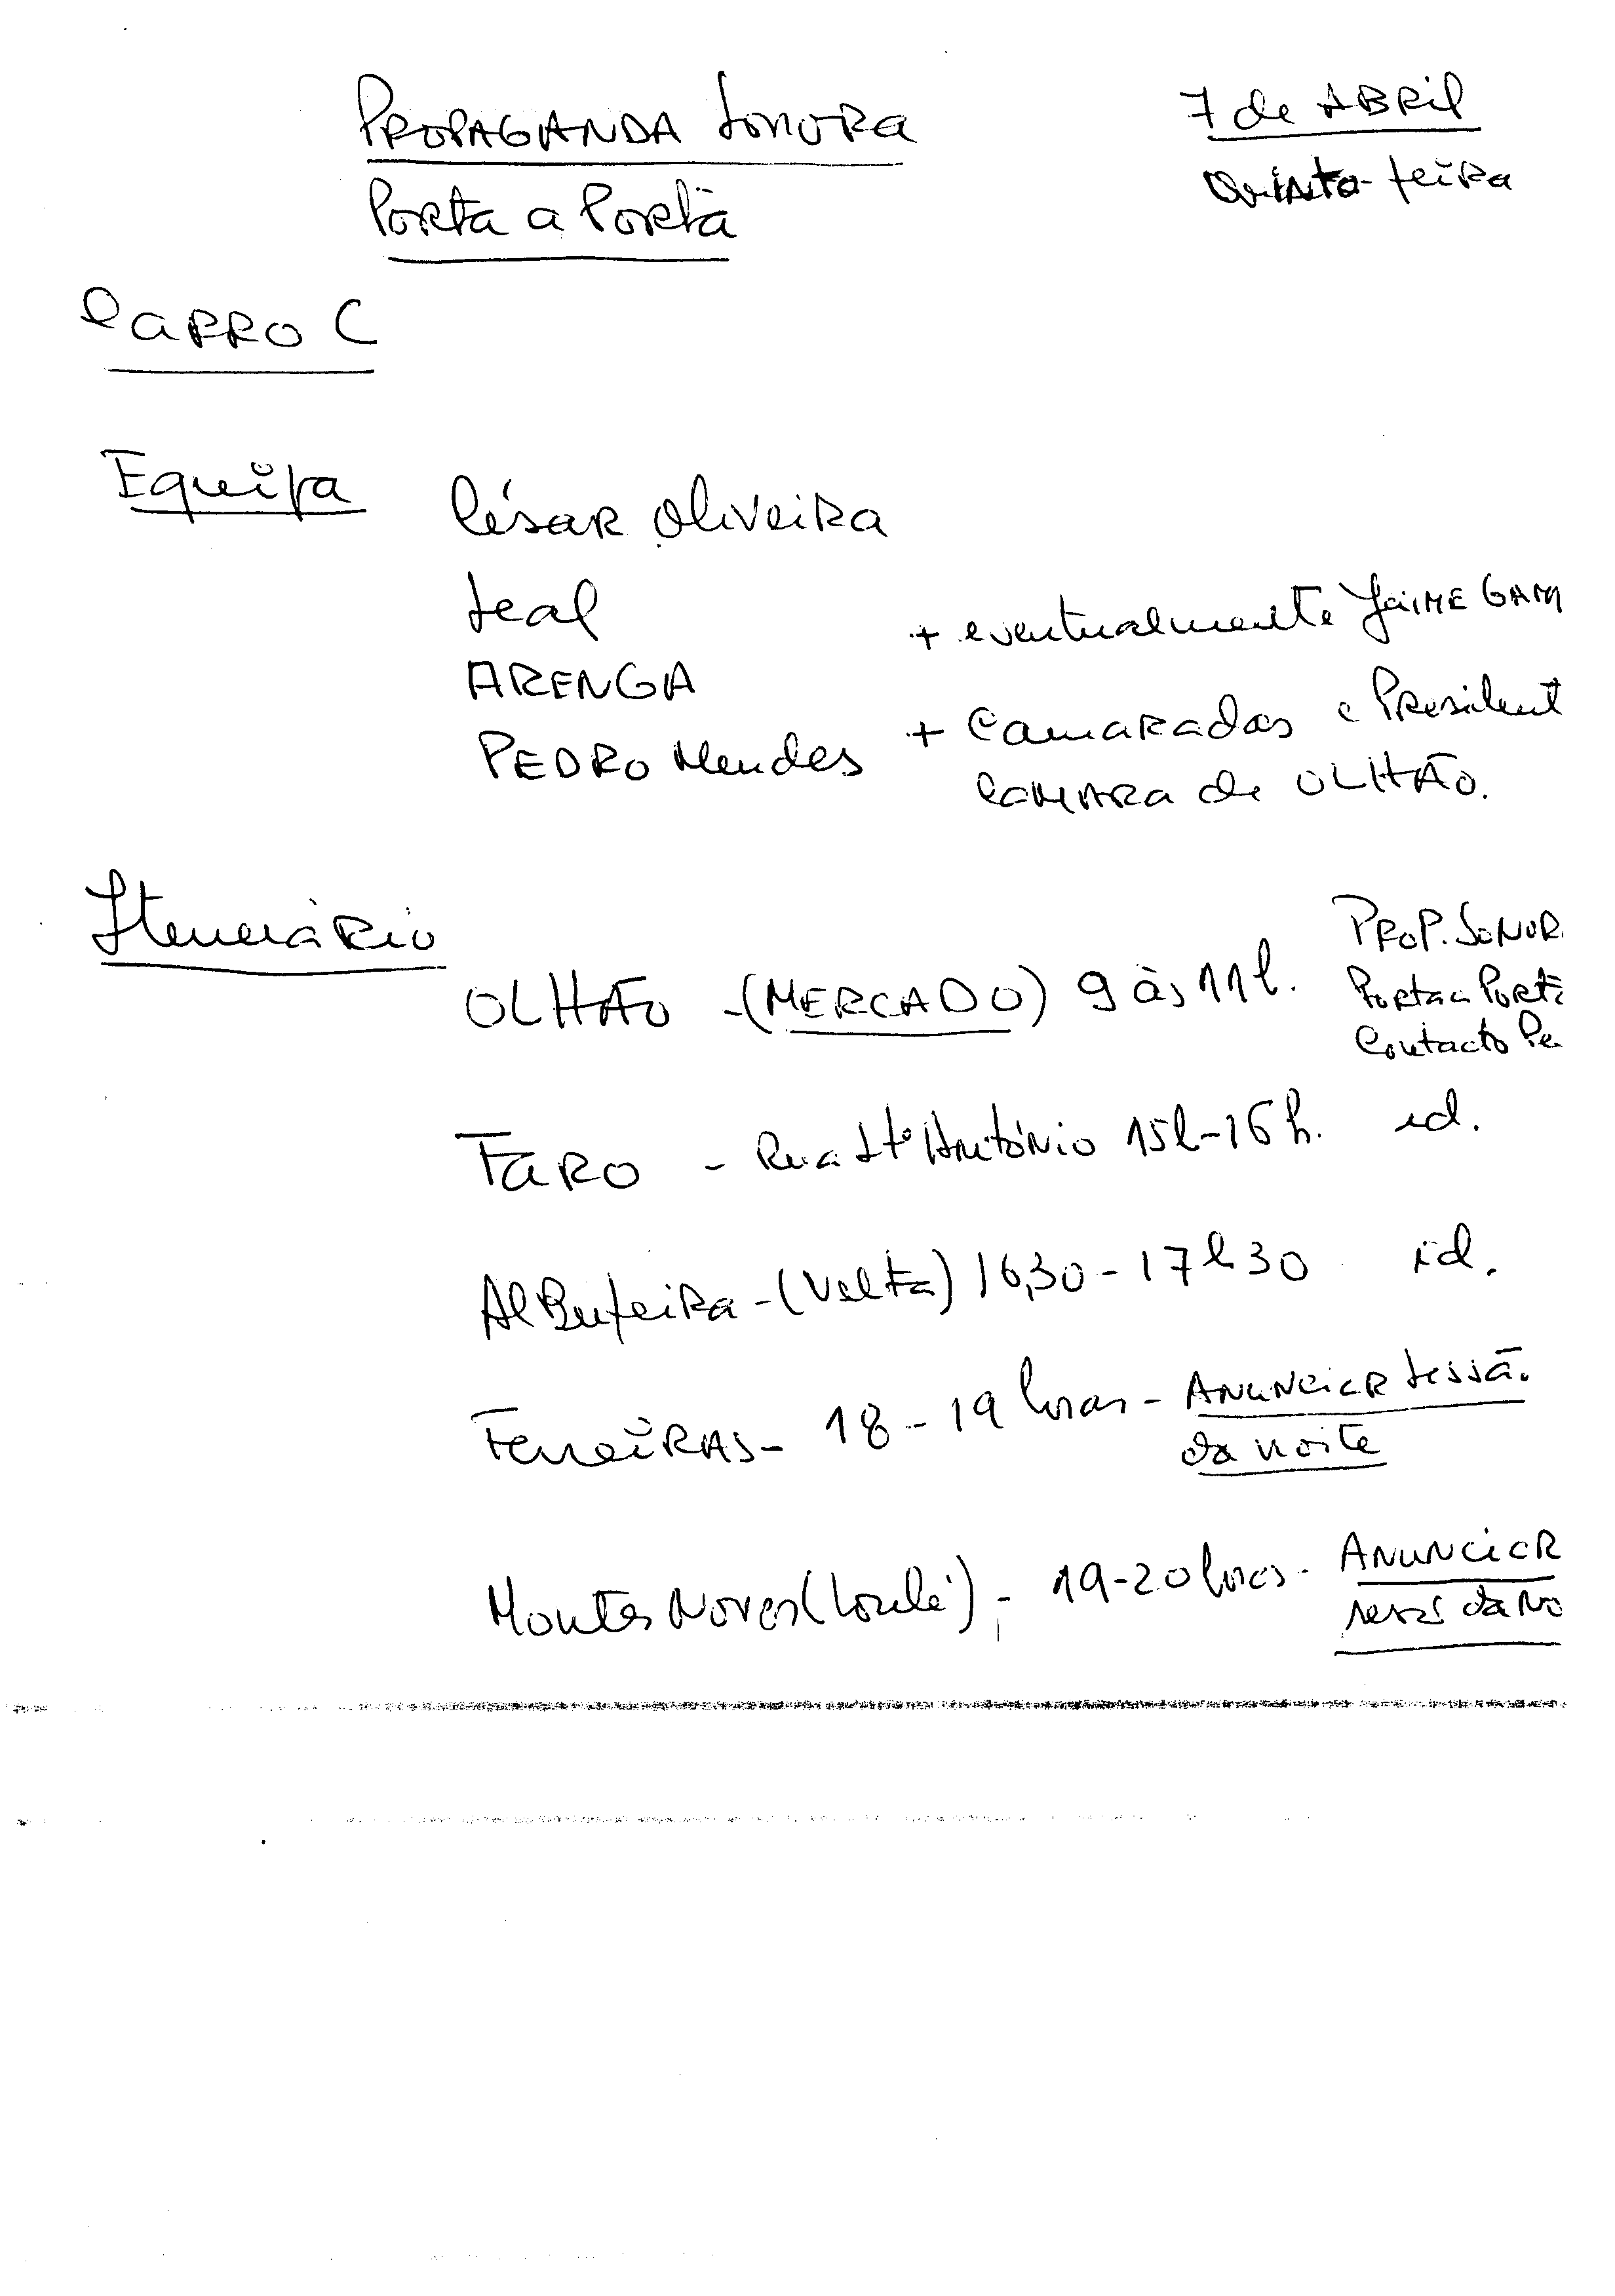 PROPAGANDA SONORA
7 de ABRIL
Porta a Porta
Quinta-feira
CARRO C
Equipa César Oliveira
Leal
+ eventualmente Jaime GAM
ARENGA
+ Camaradas e President
PEDRO Mendes
CAMARA de OLHÃO.
Itenerário
PROP. SONOR.
OLHÃO - (MERCADO) 9 às 11h.
Porta a Porta
Contacto Pe
FARO - Rua Stº António 15h-16h. id.
AlBufeira - (Volta) 16,30 - 17h30 id.
FerreiRAS - 18 - 19 horas - Anunciar sessão
da noite
Montes Novos (Loulé) - 19-20 horas - Anunciar
da No